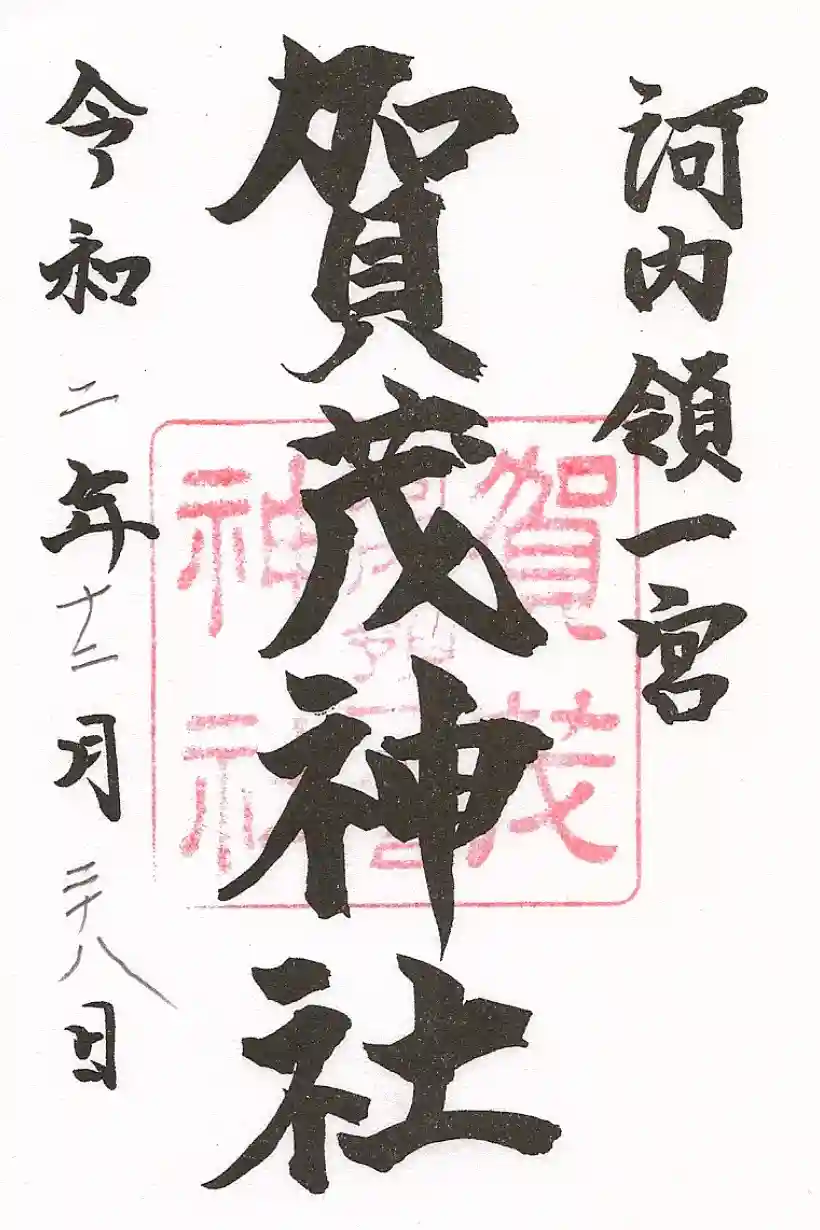 河内領一宮
賀茂神社
令和二年十二月二十八日
賀茂
神社